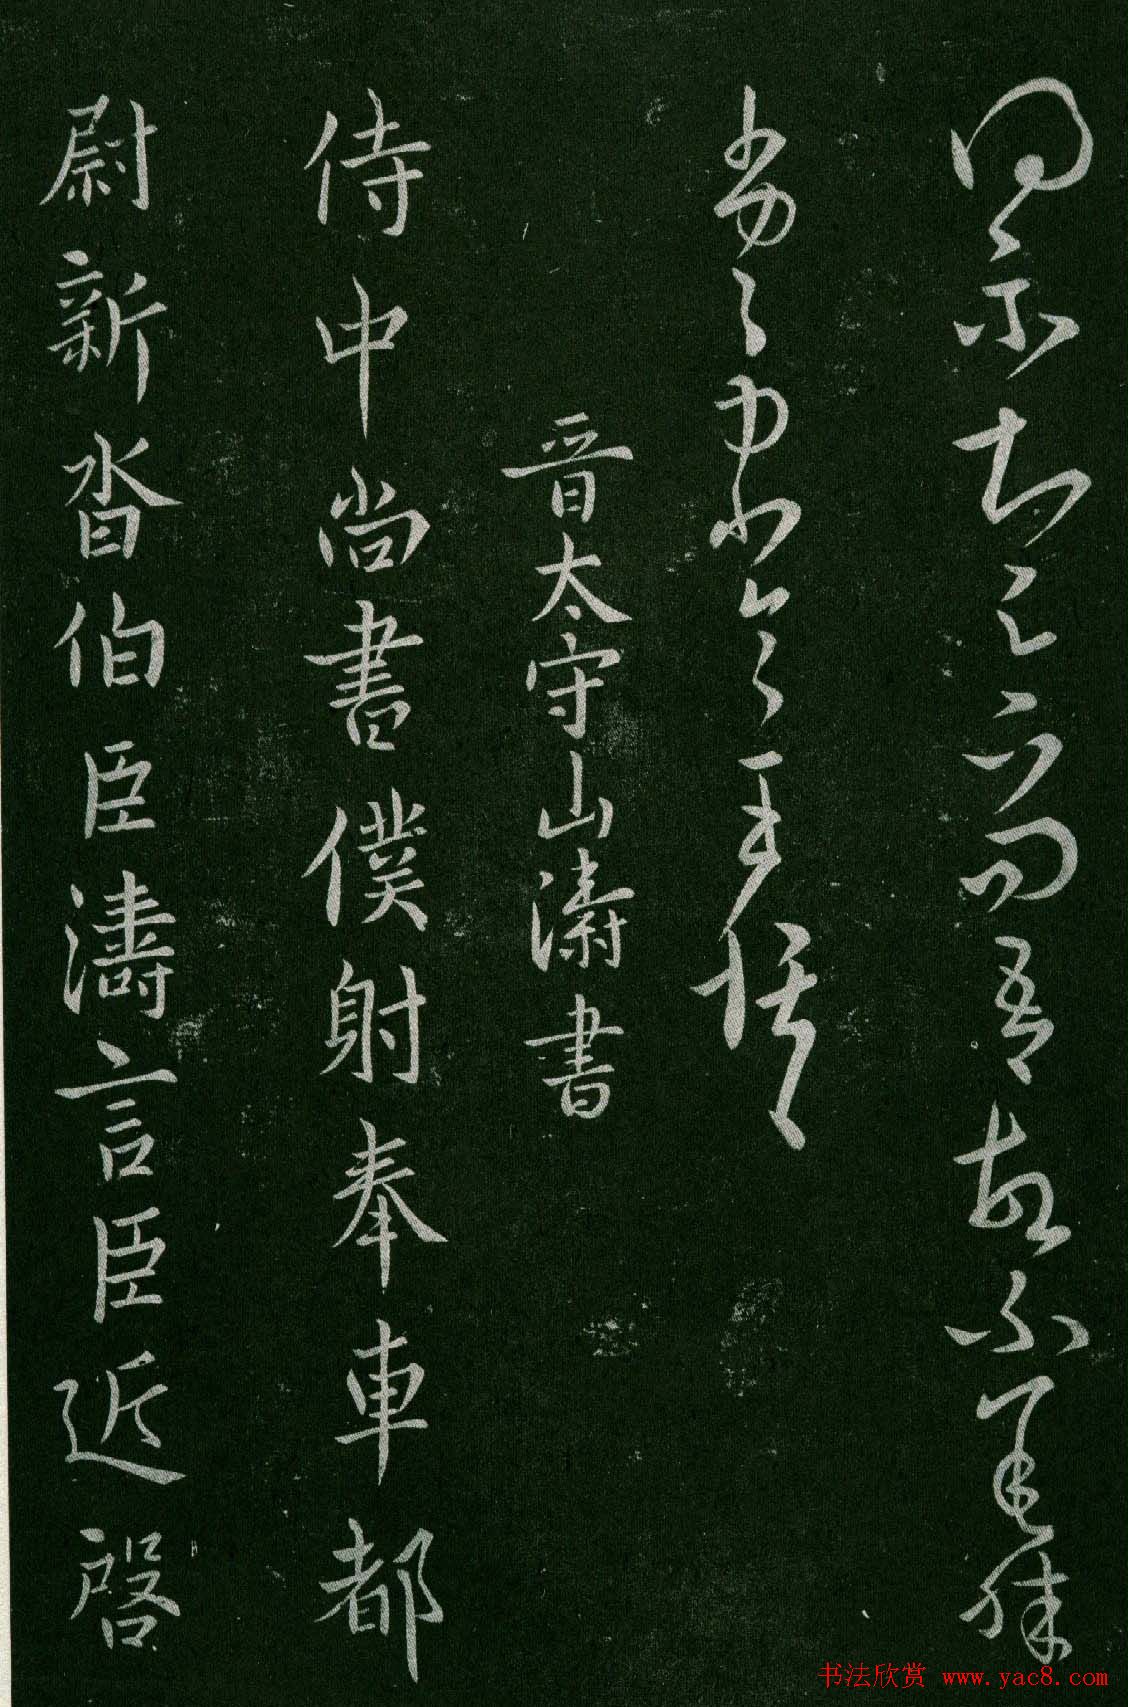 示知下問吾故不
王恬
晉太守山濤書
侍中尚書僕射奉車都
尉新沓伯臣濤言臣近啓
书法欣赏 www.yac8.com